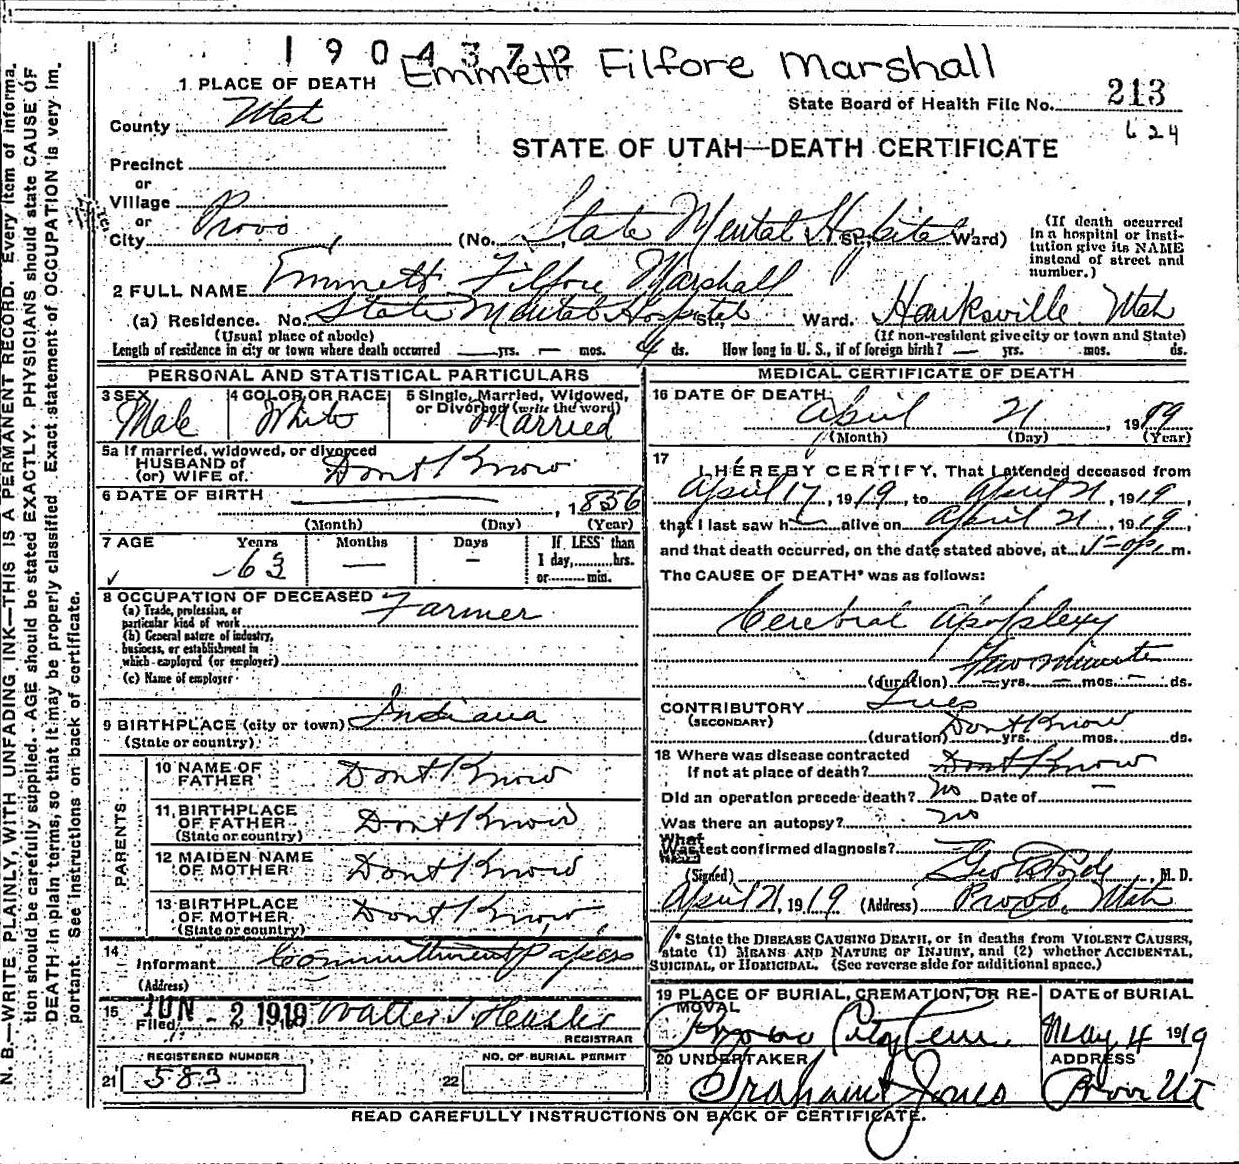 1904372
Emmett Filfore Marshall
1 PLACE OF DEATH
State Board of Health File No. 213
County Utah
624
STATE OF UTAH—DEATH CERTIFICATE
Precinct
or
Village
or
City Provo, (No. State Mental Hospital St., Ward)
(If death occurred in a hospital or insti-
tution give its NAME
instead of street and
number.)
2 FULL NAME Emmett Filfore Marshall
(a) Residence. No. State Mental Hospital St., Ward. Hanksville Utah
(Usual place of abode) (If non-resident give city or town and State)
Length of residence in city or town where death occurred — yrs. — mos. 4 ds. How long in U. S., if of foreign birth? — yrs. mos. ds.
PERSONAL AND STATISTICAL PARTICULARS
3 SEX Male
4 COLOR OR RACE White
5 Single, Married, Widowed,
or Divorced (write the word)
Married
5a If married, widowed, or divorced
HUSBAND of
(or) WIFE of Dont Know
6 DATE OF BIRTH , 1856
(Month) (Day) (Year)
7 AGE Years Months Days If LESS than
63 — — 1 day, hrs.
or min.
8 OCCUPATION OF DECEASED Farmer
(a) Trade, profession, or
particular kind of work
(b) General nature of industry,
business, or establishment in
which employed (or employer)
(c) Name of employer
9 BIRTHPLACE (city or town) Indiana
(State or country)
PARENTS
10 NAME OF
FATHER Dont Know
11 BIRTHPLACE
OF FATHER Dont Know
(State or country)
12 MAIDEN NAME
OF MOTHER Dont Know
13 BIRTHPLACE
OF MOTHER Dont Know
(State or country)
14
Informant Committment Papers
(Address)
15 JUN - 2 1919
Filed Walter T Hasler
REGISTRAR
REGISTERED NUMBER NO. OF BURIAL PERMIT
21 583 22
MEDICAL CERTIFICATE OF DEATH
16 DATE OF DEATH
April 21, 1919
(Month) (Day) (Year)
17
I HEREBY CERTIFY, That I attended deceased from
April 17, 1919, to April 21, 1919,
that I last saw h— alive on April 21, 1919,
and that death occurred, on the date stated above, at m.
The CAUSE OF DEATH* was as follows:
Cerebral Apoplexy
Few minutes
(duration) — yrs. — mos. — ds.
CONTRIBUTORY Lues
(SECONDARY) Dont Know
(duration) yrs. mos. ds.
18 Where was disease contracted
If not at place of death? Dont Know
Did an operation precede death? No Date of —
Was there an autopsy? no
What test confirmed diagnosis?
(Signed) Geo E Hyde, M. D.
April 21, 1919 (Address) Provo, Utah
* State the DISEASE CAUSING DEATH, or in deaths from VIOLENT CAUSES,
state (1) MEANS AND NATURE OF INJURY, and (2) whether ACCIDENTAL,
SUICIDAL, or HOMICIDAL. (See reverse side for additional space.)
19 PLACE OF BURIAL, CREMATION, OR RE-
MOVAL
Provo City Cem.
DATE OF BURIAL
May 4 1919
20 UNDERTAKER
Graham Jones
ADDRESS
Provo Ut
READ CAREFULLY INSTRUCTIONS ON BACK OF CERTIFICATE.
N. B.—WRITE PLAINLY, WITH UNFADING INK—THIS IS A PERMANENT RECORD. Every item of informa-
tion should be carefully supplied. AGE should be stated EXACTLY. PHYSICIANS should state CAUSE OF
DEATH in plain terms, so that it may be properly classified. Exact statement of OCCUPATION is very im-
portant. See instructions on back of certificate.